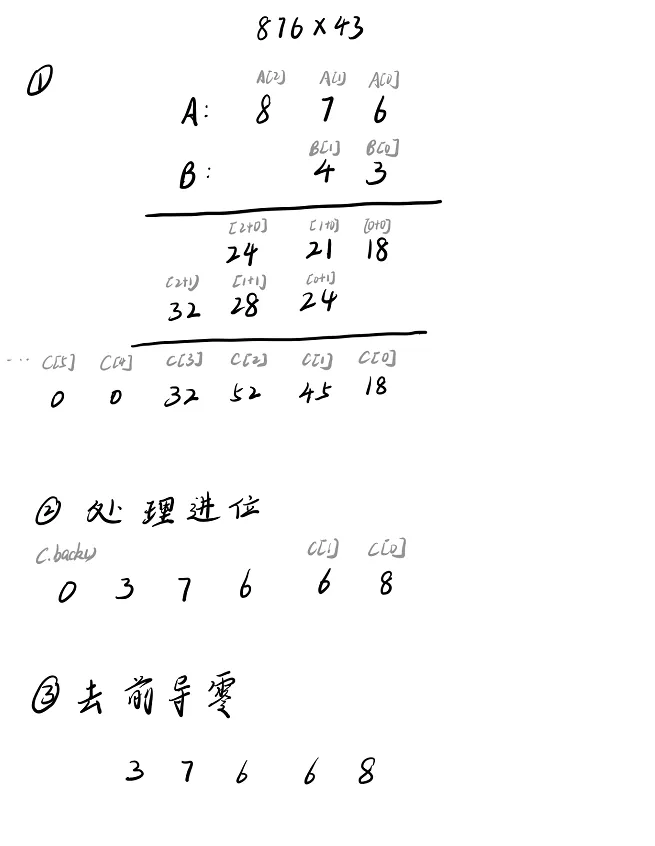 876×43
① A[2] A[1] A[0]
A: 8 7 6
B[1] B[0]
B: 4 3
[2+0] [1+0] [0+0]
24 21 18
[2+1) [1+1] [0+1]
32 28 24
... C[5] C[4] C[3] C[2] C[1] C[0]
0 0 32 52 45 18
② 处理进位
C.back() C[1] C[0]
0 3 7 6 6 8
③ 去前导零
3 7 6 6 8